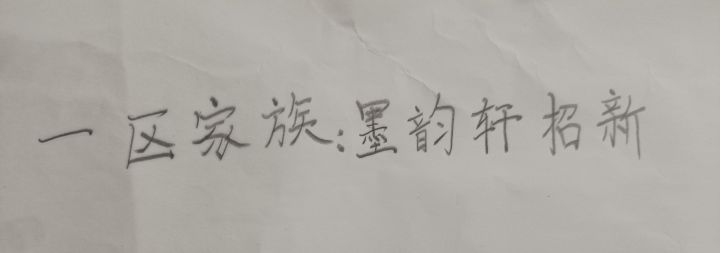 一区家族:墨韵轩招新